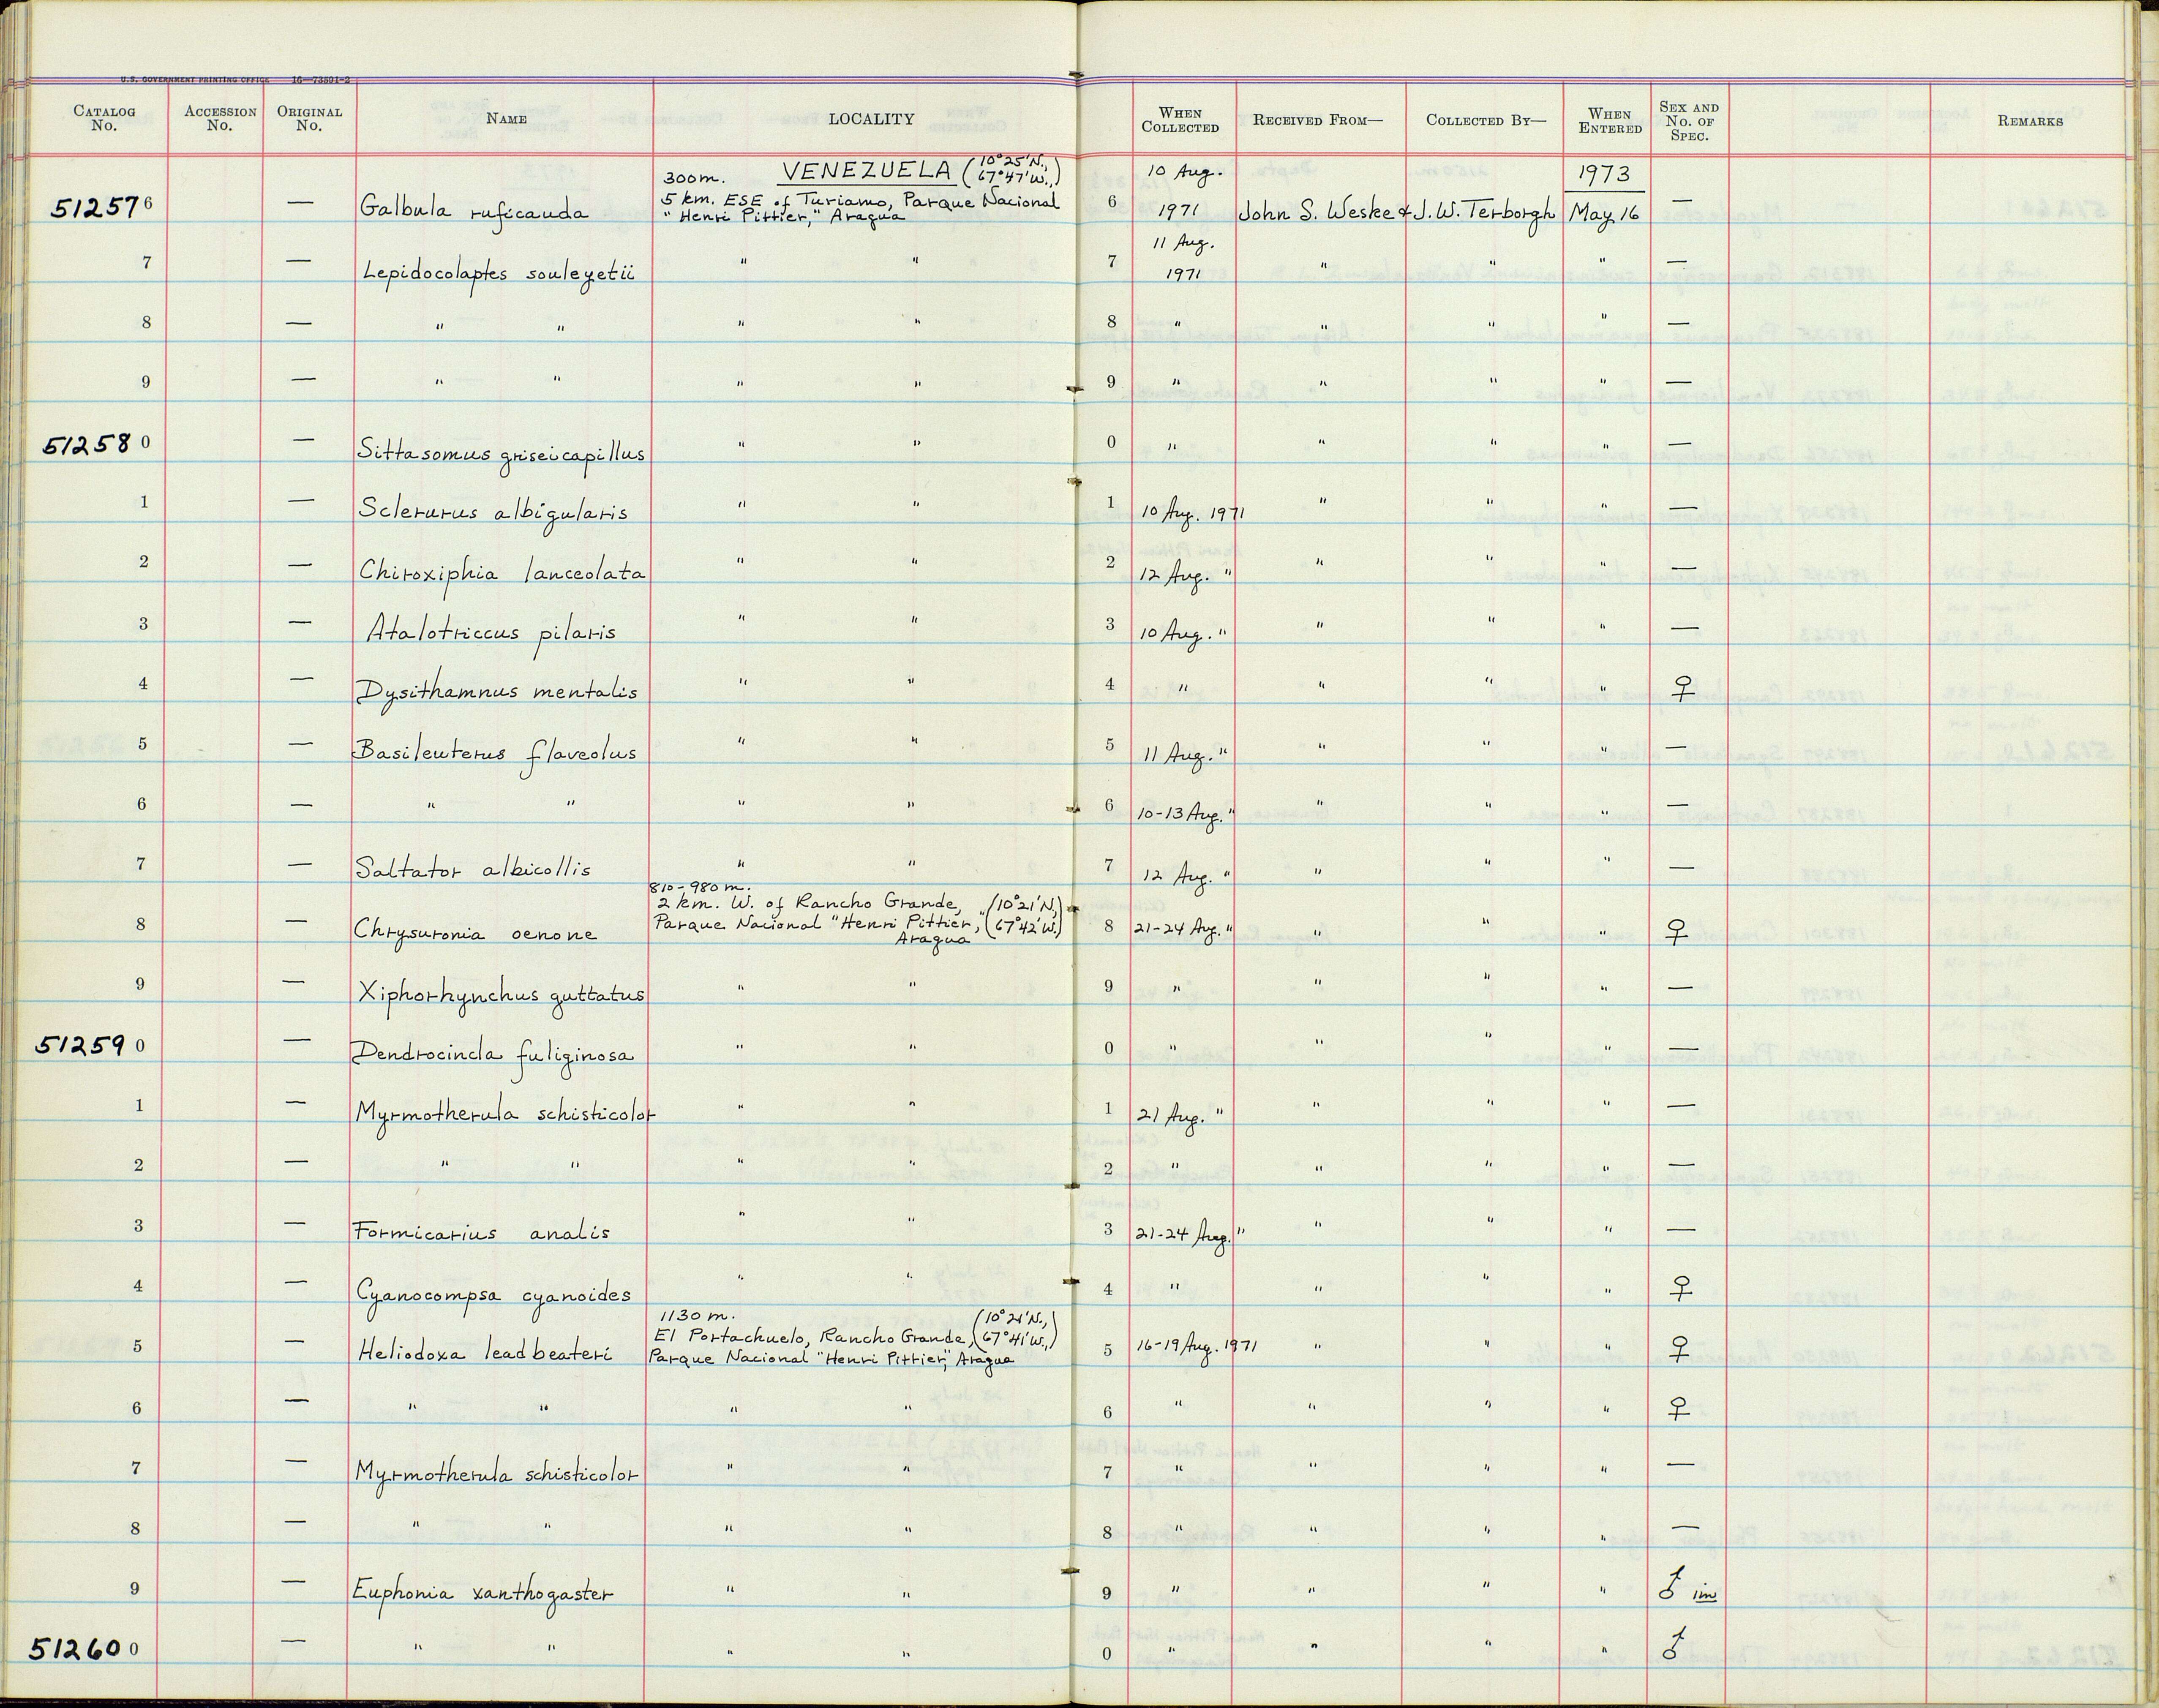 U.S. GOVERNMENT PRINTING OFFICE 16—73591-2
CATALOG No. ACCESSION No. ORIGINAL No. NAME LOCALITY WHEN COLLECTED RECEIVED FROM— COLLECTED BY— WHEN ENTERED SEX AND No. OF SPEC. REMARKS
VENEZUELA (10°25'N., 67°47'W.,) 1973
300m.
512576 — Galbula ruficauda 5 km. ESE of Turiamo, Parque Nacional "Henri Pittier," Aragua 6 10 Aug. 1971 John S. Weske & J.W. Terborgh May 16 —
7 — Lepidocolaptes souleyetii " " 7 11 Aug. 1971 " " " —
8 — " " " " 8 " " " " —
9 — " " " " 9 " " " " —
512580 — Sittasomus griseicapillus " " 0 " " " " —
1 — Sclerurus albigularis " " 1 10 Aug. 1971 " " " —
2 — Chiroxiphia lanceolata " " 2 12 Aug. " " " " —
3 — Atalotriccus pilaris " " 3 10 Aug. " " " " —
4 — Dysithamnus mentalis " " 4 " " " " ♀
5 — Basileuterus flaveolus " " 5 11 Aug. " " " " —
6 — " " " " 6 10-13 Aug. " " " " —
7 — Saltator albicollis " " 7 12 Aug. " " " " —
810-980 m.
8 — Chrysuronia oenone 2 km. W. of Rancho Grande, Parque Nacional "Henri Pittier," (10°21'N., 67°42'W.) Aragua 8 21-24 Aug. " " " " ♀
9 — Xiphorhynchus guttatus " " 9 " " " " —
512590 — Dendrocincla fuliginosa " " 0 " " " " —
1 — Myrmotherula schisticolor " " 1 21 Aug. " " " " —
2 — " " " " 2 " " " " —
3 — Formicarius analis " " 3 21-24 Aug. " " " " —
4 — Cyanocompsa cyanoides " " 4 " " " " ♀
1130 m.
5 — Heliodoxa leadbeateri El Portachuelo, Rancho Grande, (10°21'N., 67°41'W.,) Parque Nacional "Henri Pittier," Aragua 5 16-19 Aug. 1971 " " " ♀
6 — " " " " 6 " " " " ♀
7 — Myrmotherula schisticolor " " 7 " " " " —
8 — " " " " 8 " " " " —
9 — Euphonia xanthogaster " " 9 " " " " ♂ im
512600 — " " " " 0 " " " " ♂